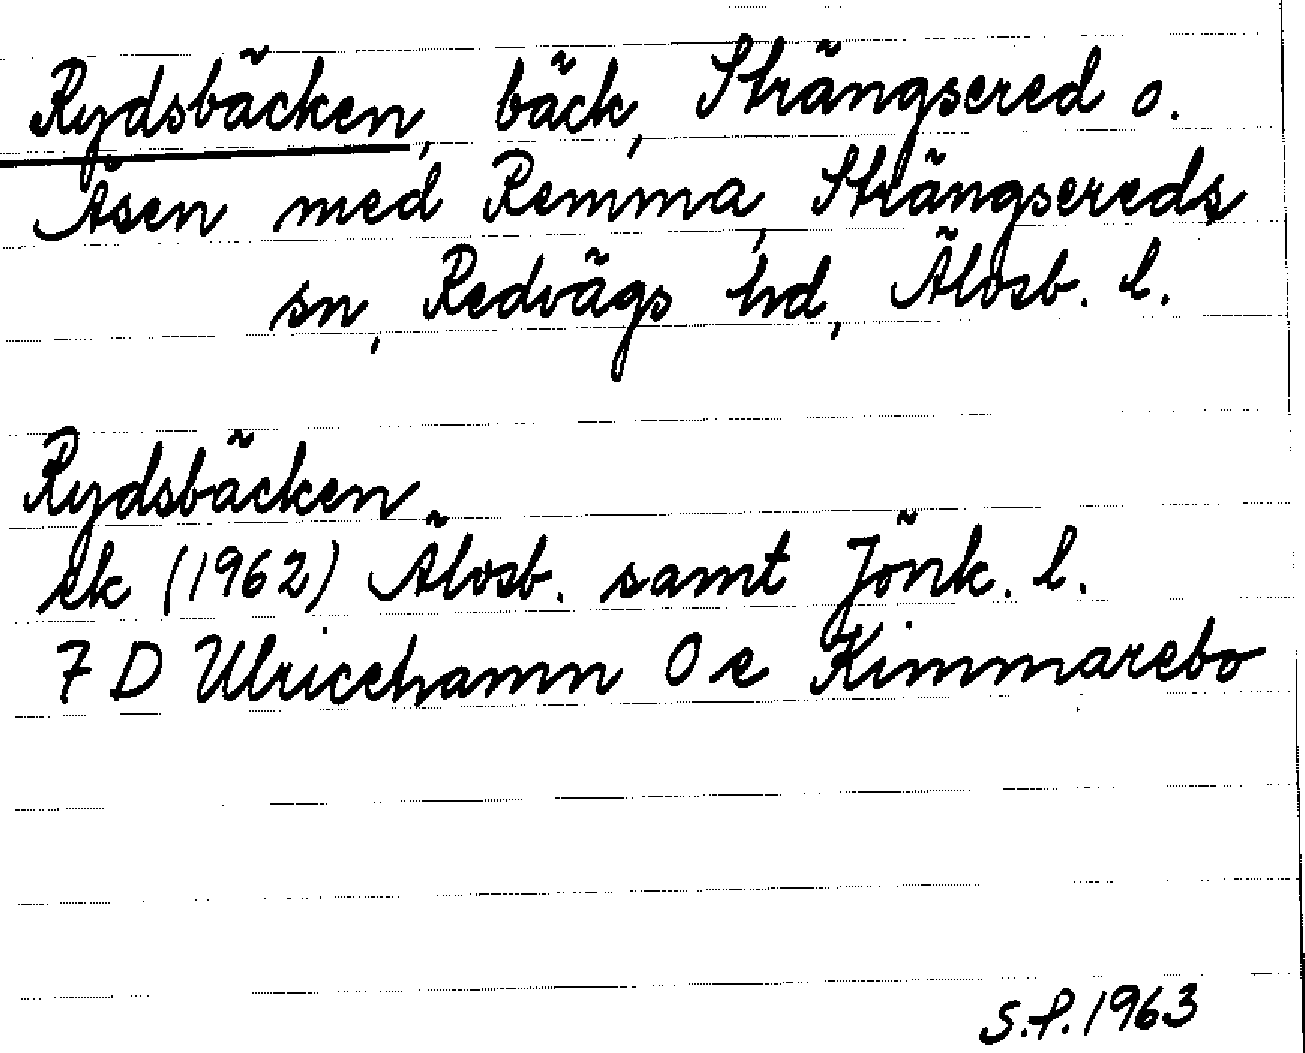 Rydsbäcken, bäck, Strängsered o.
Åsen med Remma, Strängsereds
sn, Redvägs hd, Älvsb. l.
Rydsbäcken
ek (1962) Älvsb. samt Jönk. l.
7 D Ulricehamn 0 e Kimmarebo
S.P. 1963